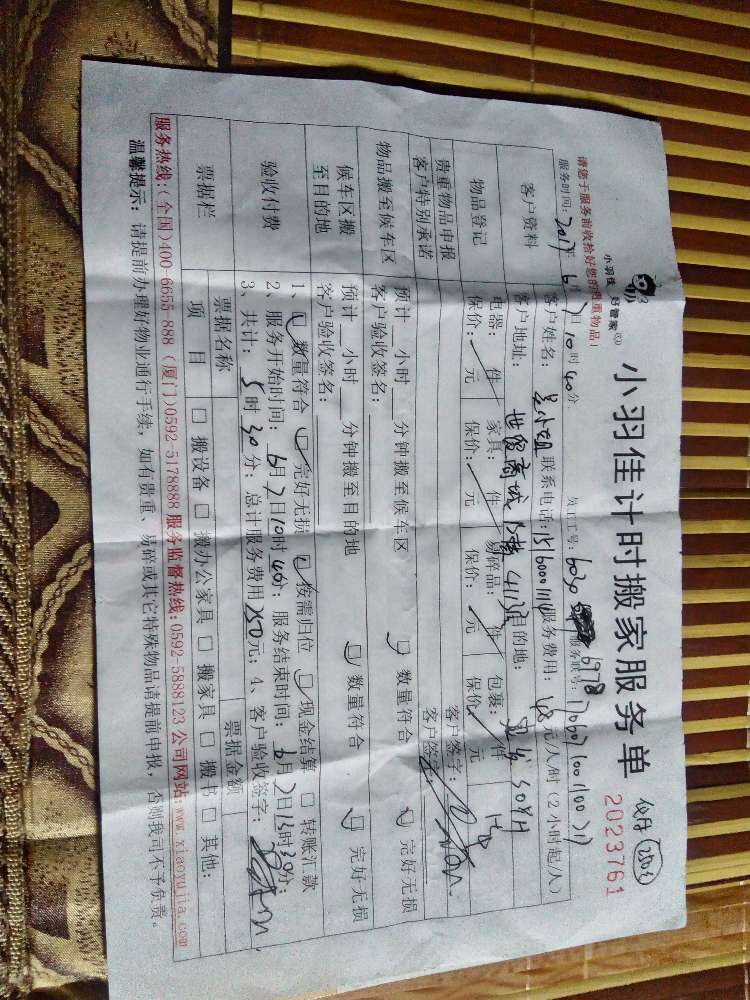 小羽佳 好管家
小羽佳计时搬家服务单
2023761
请您于服务前收拾好您的贵重物品!
服务时间: 2017年6月7日10时40分 员工工号: 6030 6978 服务账号:
客户资料 客户姓名: 联系电话: 服务费用: 48元/人/时(2小时起/人)
客户地址: 世贸商城 目的地:
物品登记 电器: 件 家具: 件 易碎品: 件 包裹: 件
保价: 元 保价: 元 保价: 元 保价: 元
贵重物品申报 客户签字:
客户特别承诺 客户签字:
物品搬至候车区 预计 小时 分钟搬至候车区 数量符合 完好无损
客户验收签名:
候车区搬至目的地 预计 小时 分钟搬至目的地 数量符合 完好无损
客户验收签名:
验收付费 1、 数量符合 完好无损 按需归位 现金结算 转账汇款
2、服务开始时间: 6月7日10时40分; 服务结束时间: 6月7日15时30分;
3、共计: 5时30分; 总计服务费用250元; 4、客户验收签字:
票据栏 票据名称 票据金额
项目 搬设备 搬办公家具 搬家具 搬书 其他:
服务热线:(全国)400-6655-888 (厦门)0592-5178888 服务监督热线:0592-5888123 公司网站:www.xiaoyujia.com
温馨提示: 请提前办理好物业通行手续, 如有贵重、易碎或其它特殊物品请提前申报, 否则我司不予负责。